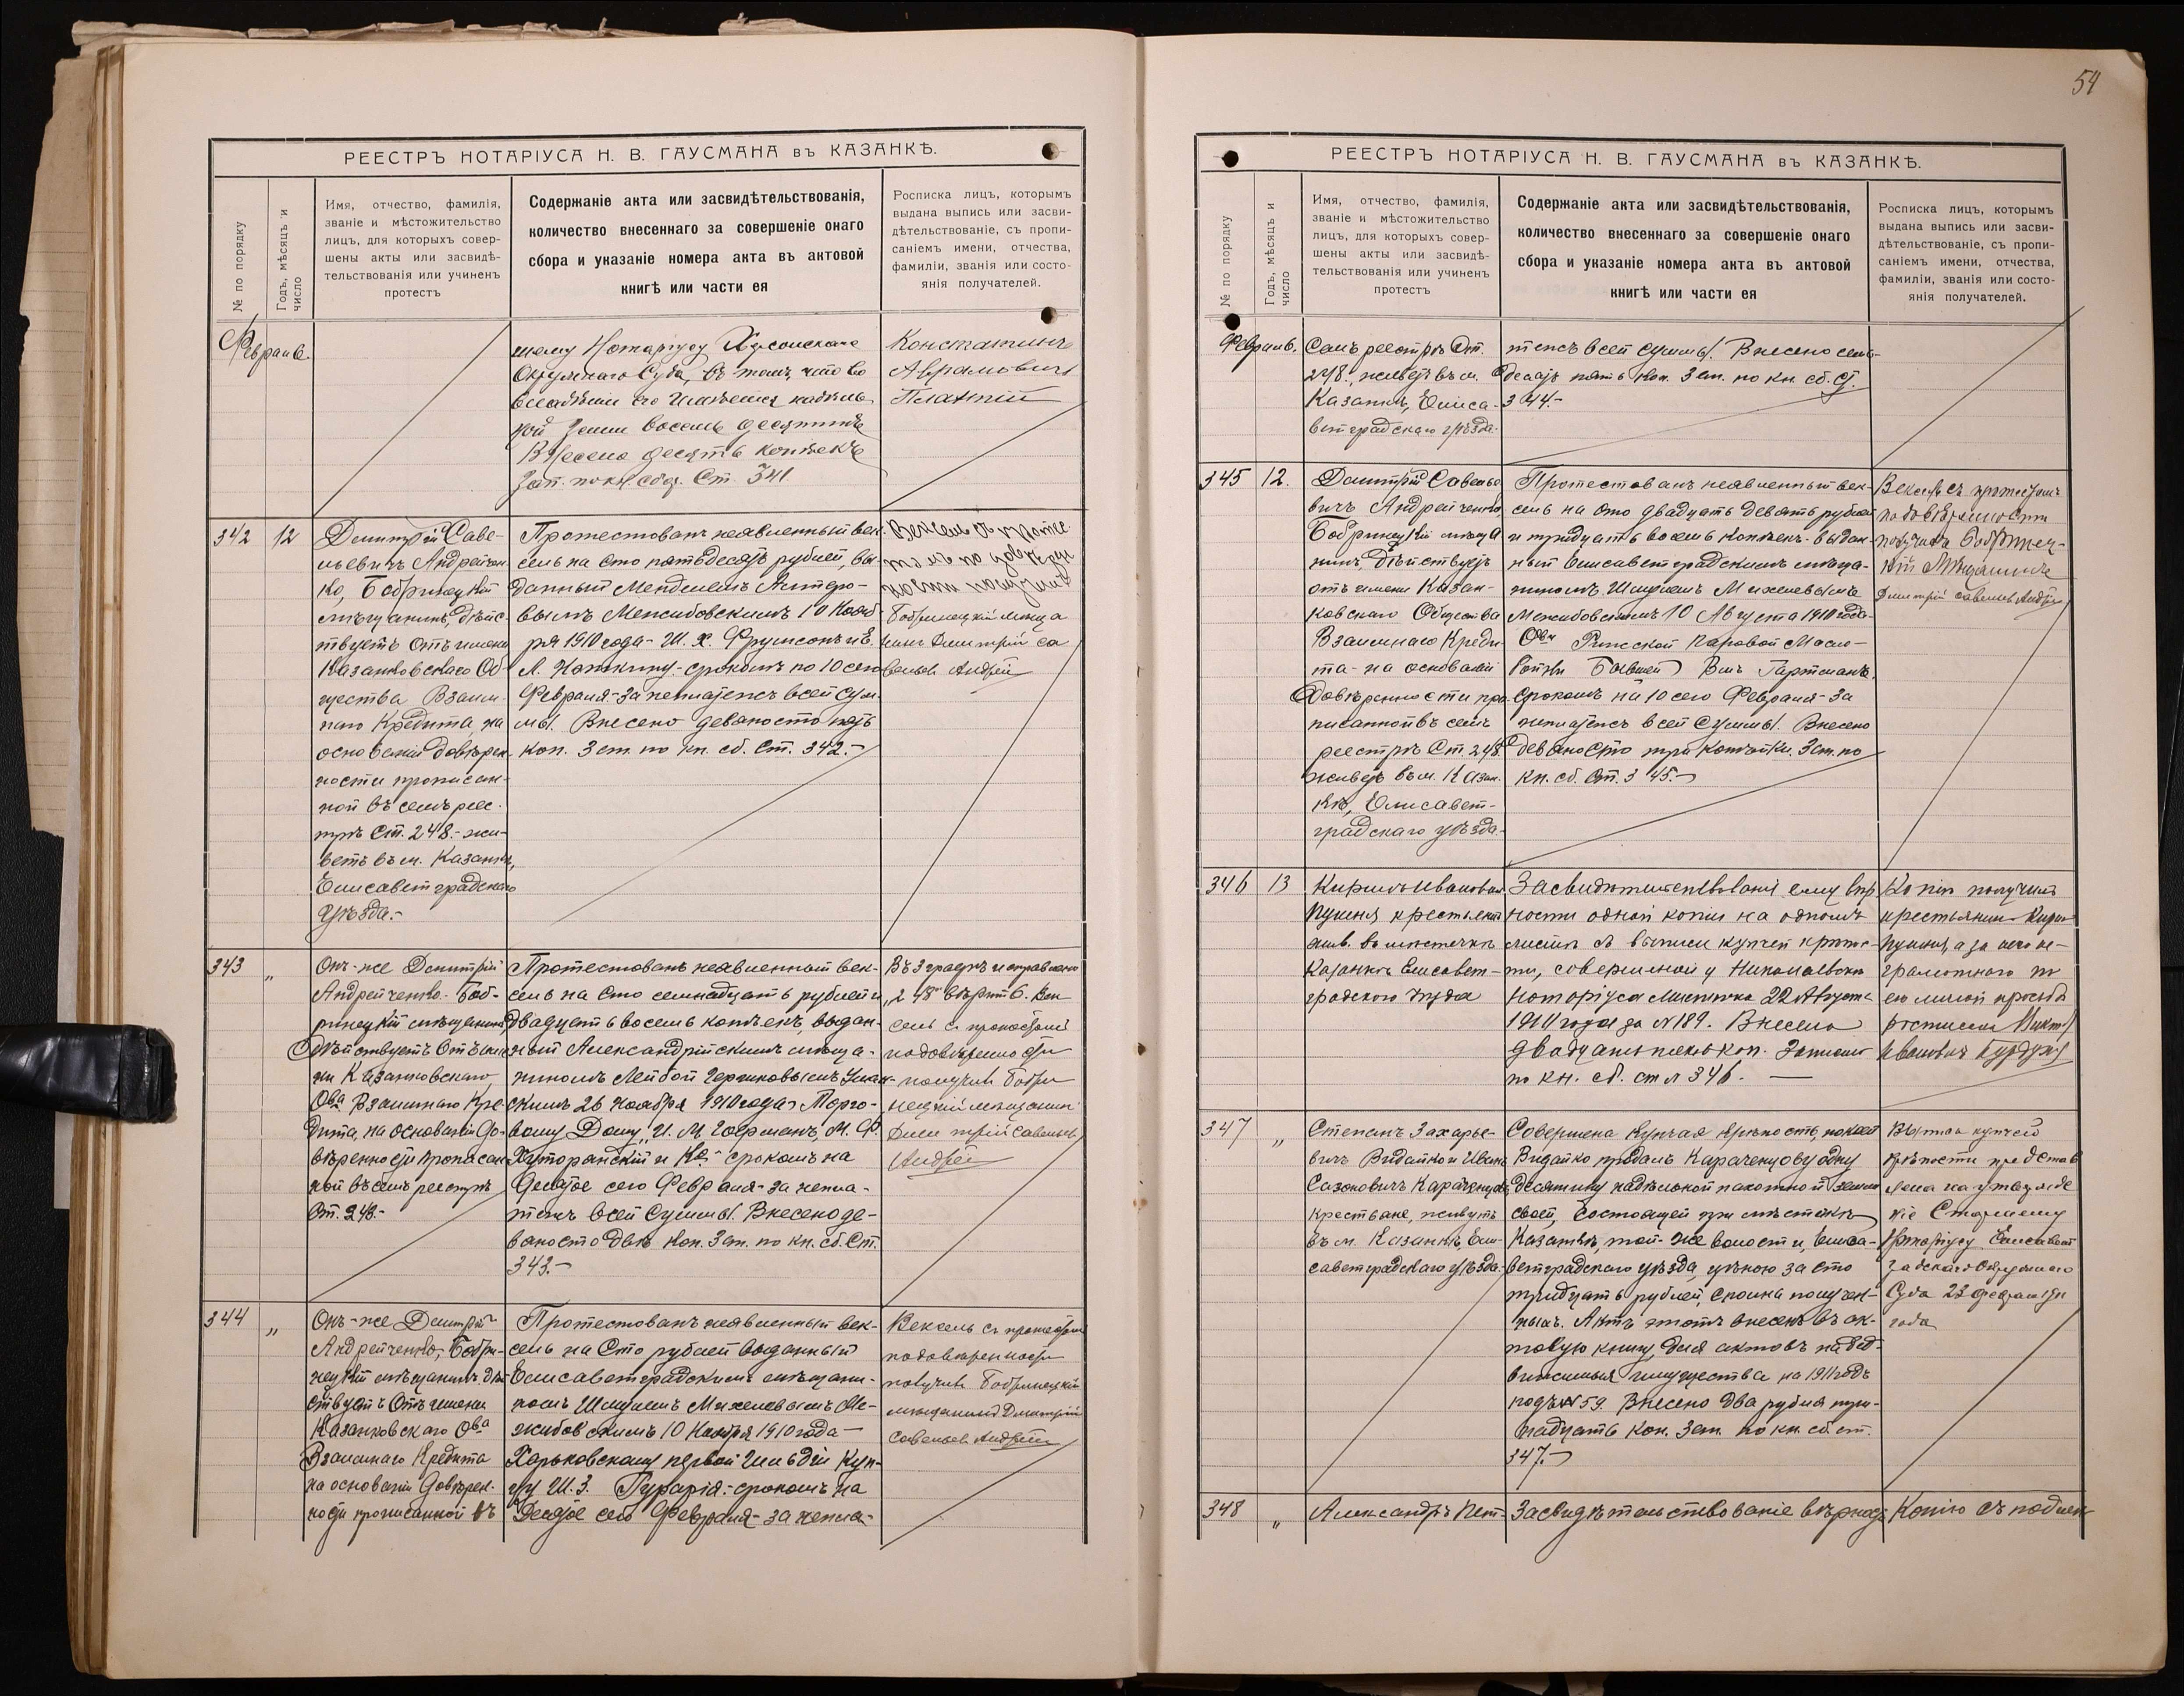 РЕЕСТРЪ НОТАРІУСА Н. В. ГАУСМАНА въ КАЗАНКѢ.
№ по порядку
Годъ, мѣсяцъ и
число
Имя, отчество, фамилія,
званіе и мѣстожительство
лицъ, для которыхъ совер-
шены акты или засвидѣ-
тельствованія или учиненъ
протестъ
Содержаніе акта или засвидѣтельствованія,
количество внесеннаго за совершеніе онаго
сбора и указаніе номера акта въ актовой
книгѣ или части ея
Росписка лицъ, которымъ
выдана выпись или засви-
дѣтельствованіе, съ пропи-
саніемъ имени, отчества,
фамиліи, званія или состо-
янія получателей.
Февраль.
шему Нотаріусу Херсонскаго
Окружнаго Суда, въ томъ, что во
владѣніи его имѣется надѣль-
ной земли восемь десятинъ
Внесено десять копѣекъ
Зап. по кн. сбор. Ст. 341
Константинъ
Аврамовичъ
342
12
Димитрій Саве-
льевичъ Андрейчен-
ко, Бобринецкій
мѣщанинъ, дѣйс-
твуетъ отъ имени
Казанковскаго Об-
щества Взаим-
наго Кредита, на
основаніи довѣрен-
ности прописан-
ной въ семъ реес-
трѣ Ст. 248.- жи-
ветъ въ м. Казанкѣ,
Елисаветградскаго
уѣзда.-
Протестованъ неявленный век-
сель на сто пятьдесятъ рублей, вы-
данный Менделемъ
вымъ Межибовскимъ 10 Нояб-
ря 1910 года - Ш. Х. Фрумсонъ и Е.
Л. Коткину - срокомъ по 10 сего
Февраля - за неплатежъ всей сум-
мы. Внесено девяносто пять
коп. Зст. по кн. сб. Ст. 342.-
Вексель съ проте-
по довѣрен-
ности получилъ
Бобринецкій мѣща
нинъ Димитрій Са
вельев Андрей
343
"
Онъ-же Димитрій
Андрейченко - Боб-
ринецкій мѣщанинъ
Дѣйствуетъ отъ име-
ни Казанковскаго
О-ва Взаимнаго Кре-
дита, на основаніи до-
вѣренности прописан-
ной въ семъ реестрѣ
Ст. 248.-
Протестованъ неявленный век-
сель на сто семнадцать рублей и
двадцать восемь копѣекъ, выдан-
ный Александрійскимъ мѣща-
ниномъ Лейбой Гершковымъ Уман-
скимъ 26 Ноября 1910 года - Торго-
вому Дому "И. М. Гофманъ, М. Ф.
Хуторанскій и Ко" - срокомъ на
Десятое сего Февраля - за непла-
тежъ всей суммы. Внесено де-
вяносто двѣ коп. Зст. по кн. сб. Ст.
343.-
Въ 3 графѣ исправлено
"248" вѣрить. Век
сель съ протестомъ
по довѣренности
получилъ Бобри
нецкій мѣщанинъ
Димитрій Савельев
Андрей
344
"
Онъ-же Димитрій
Андрейченко, Бобри-
нецкій мѣщанинъ дѣй-
ствуетъ отъ имени
Казанковскаго О-ва
Взаимнаго Кредита
на основаніи довѣрен-
ности прописанной въ
Протестованъ неявленный век-
сель на Сто рублей выданный
Елисаветградскимъ мѣщани-
номъ Шмулемъ Михелевымъ Ме-
жибовскимъ 10 Ноября 1910 года -
Харьковскому первой Гильдіи Куп-
цу Ш. З. - срокомъ на
Десятое сего Февраля - за непла-
Вексель съ протестомъ
по довѣренности
получилъ Бобринецкій
мѣщанинъ Димитрій
Савельев Андрей
54
РЕЕСТРЪ НОТАРІУСА Н. В. ГАУСМАНА въ КАЗАНКѢ.
№ по порядку
Годъ, мѣсяцъ и
число
Имя, отчество, фамилія,
званіе и мѣстожительство
лицъ, для которыхъ совер-
шены акты или засвидѣ-
тельствованія или учиненъ
протестъ
Содержаніе акта или засвидѣтельствованія,
количество внесеннаго за совершеніе онаго
сбора и указаніе номера акта въ актовой
книгѣ или части ея
Росписка лицъ, которымъ
выдана выпись или засви-
дѣтельствованіе, съ пропи-
саніемъ имени, отчества,
фамиліи, званія или состо-
янія получателей.
Февраль.
Семъ реестрѣ Ст.
248., живетъ въ м.
Казанкѣ, Елиса-
ветградскаго уѣзда.
тежъ всей суммы. Внесено семь-
десятъ пять коп. Зст. по кн. сб. Ст.
344.-
345
12.
Димитрій Савелье-
вичъ Андрейченко
Бобринецкій мѣща
нинъ. Дѣйствуетъ
отъ имени Казан-
ковскаго Общества
Взаимнаго Креди-
та - на основаніи
Довѣренности про-
писанной въ семъ
реестрѣ Ст. 248.
живетъ въ м. Казан-
кѣ, Елисавет-
градскаго уѣзда.
Протестованъ неявленный век-
сель на сто двадцать девять рублей
и тридцать восемь копѣекъ - выдан-
ный Елисаветградскимъ мѣща-
ниномъ Шмулемъ Михелевымъ
Межибовскимъ 10 Августа 1910 года
О-ву Рижской Паровой Масло-
бойни Бывшей Вмъ Гартманъ.
срокомъ на 10 сего Февраля - за
неплатежъ всей суммы. Внесено
девяносто три копѣйки. Зст. по
кн. сб. Ст. 345.-
Вексель съ протестомъ
по довѣренности
получилъ Бобринец-
кій Мѣщанинъ
Димитрій Савельев Андрей
346
13
Кирилъ Ивановъ
Пушня крестьянинъ
жив. въ мѣстечкѣ
Казанкѣ Елисавет-
градскаго уѣзда
Засвидѣтельствованіе ему вѣр-
ности одной копіи на одномъ
листѣ съ выписи купчей крѣпос-
ти, совершенной у Николаевскаго
Нотаріуса 22 Августа
1910 года за № 189. Внесено
двадцать коп. Записано
по кн. сб. ст. 346. —
Копію получилъ
крестьянинъ Кирилъ
Пушня, а за него не-
грамотнаго по
его личной просьбѣ
росписался
Ивановъ
347
"
Степанъ Захарье-
вичъ Видайко и Иванъ
Сазоновичъ Караченцовъ,
крестьяне, живутъ
въ м. Казанкѣ, Ели-
саветградскаго уѣзда.
Совершена Купчая крѣпость, по коей
Видайко продалъ Караченцову одну
десятину надѣльной пахотной земли
своей, состоящей при мѣстечкѣ
Казанкѣ, той-же волости, Елиса-
ветградскаго уѣзда, цѣною за сто
тридцать рублей, сполна получен-
ныхъ. Актъ этотъ внесенъ въ ак-
товую книгу для актовъ о недвиж-
имыя имущества на 1911 годъ
подъ № 59. Внесено два рубля три-
надцать коп. Зст. по кн. сб. ст.
347.-
Выпись купчей
крѣпости представ
лена на утвержде
ніе Старшему
Нотаріусу Елисавет
градскаго Окружнаго
Суда 23 февраля 1911
года
348
"
Александръ Пет-
Засвидѣтельствованіе вѣрнос-
Копію съ подлин